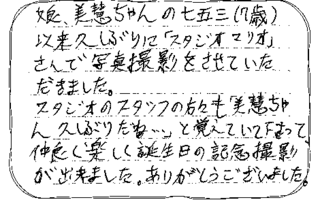 娘、美慧ちゃんの七五三(7歳)
以来久しぶりに「スタジオマリオ」
さんで写真撮影をさせていた
だきました。
スタジオのスタッフの方々も「美慧ちゃ
ん久しぶりだね…」と覚えていて下さって
仲良く楽しく誕生日の記念撮影
が出来ました。ありがとうございました。